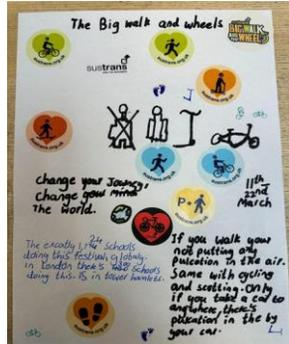 The Big walk and wheels
BIG WALK
AND
WHEEL
sustrans
sustrans.org.uk
sustrans.org.uk
sustrans.org.uk
sustrans.org.uk
sustrans.org.uk
sustrans.org.uk
P+
change your Journey,
change your mind
The world.
11th
22nd
March
The excatly 1, schools
doing this festival globaly.
in London there's schools
doing this. 15 in tower hamlets.
If you walk your
not putting any
pulcetion in the air.
Same with cycling
and scotting. Only
if you take a car to
anywhere, there's
plucation in the by
your car.
sustrans.org.uk